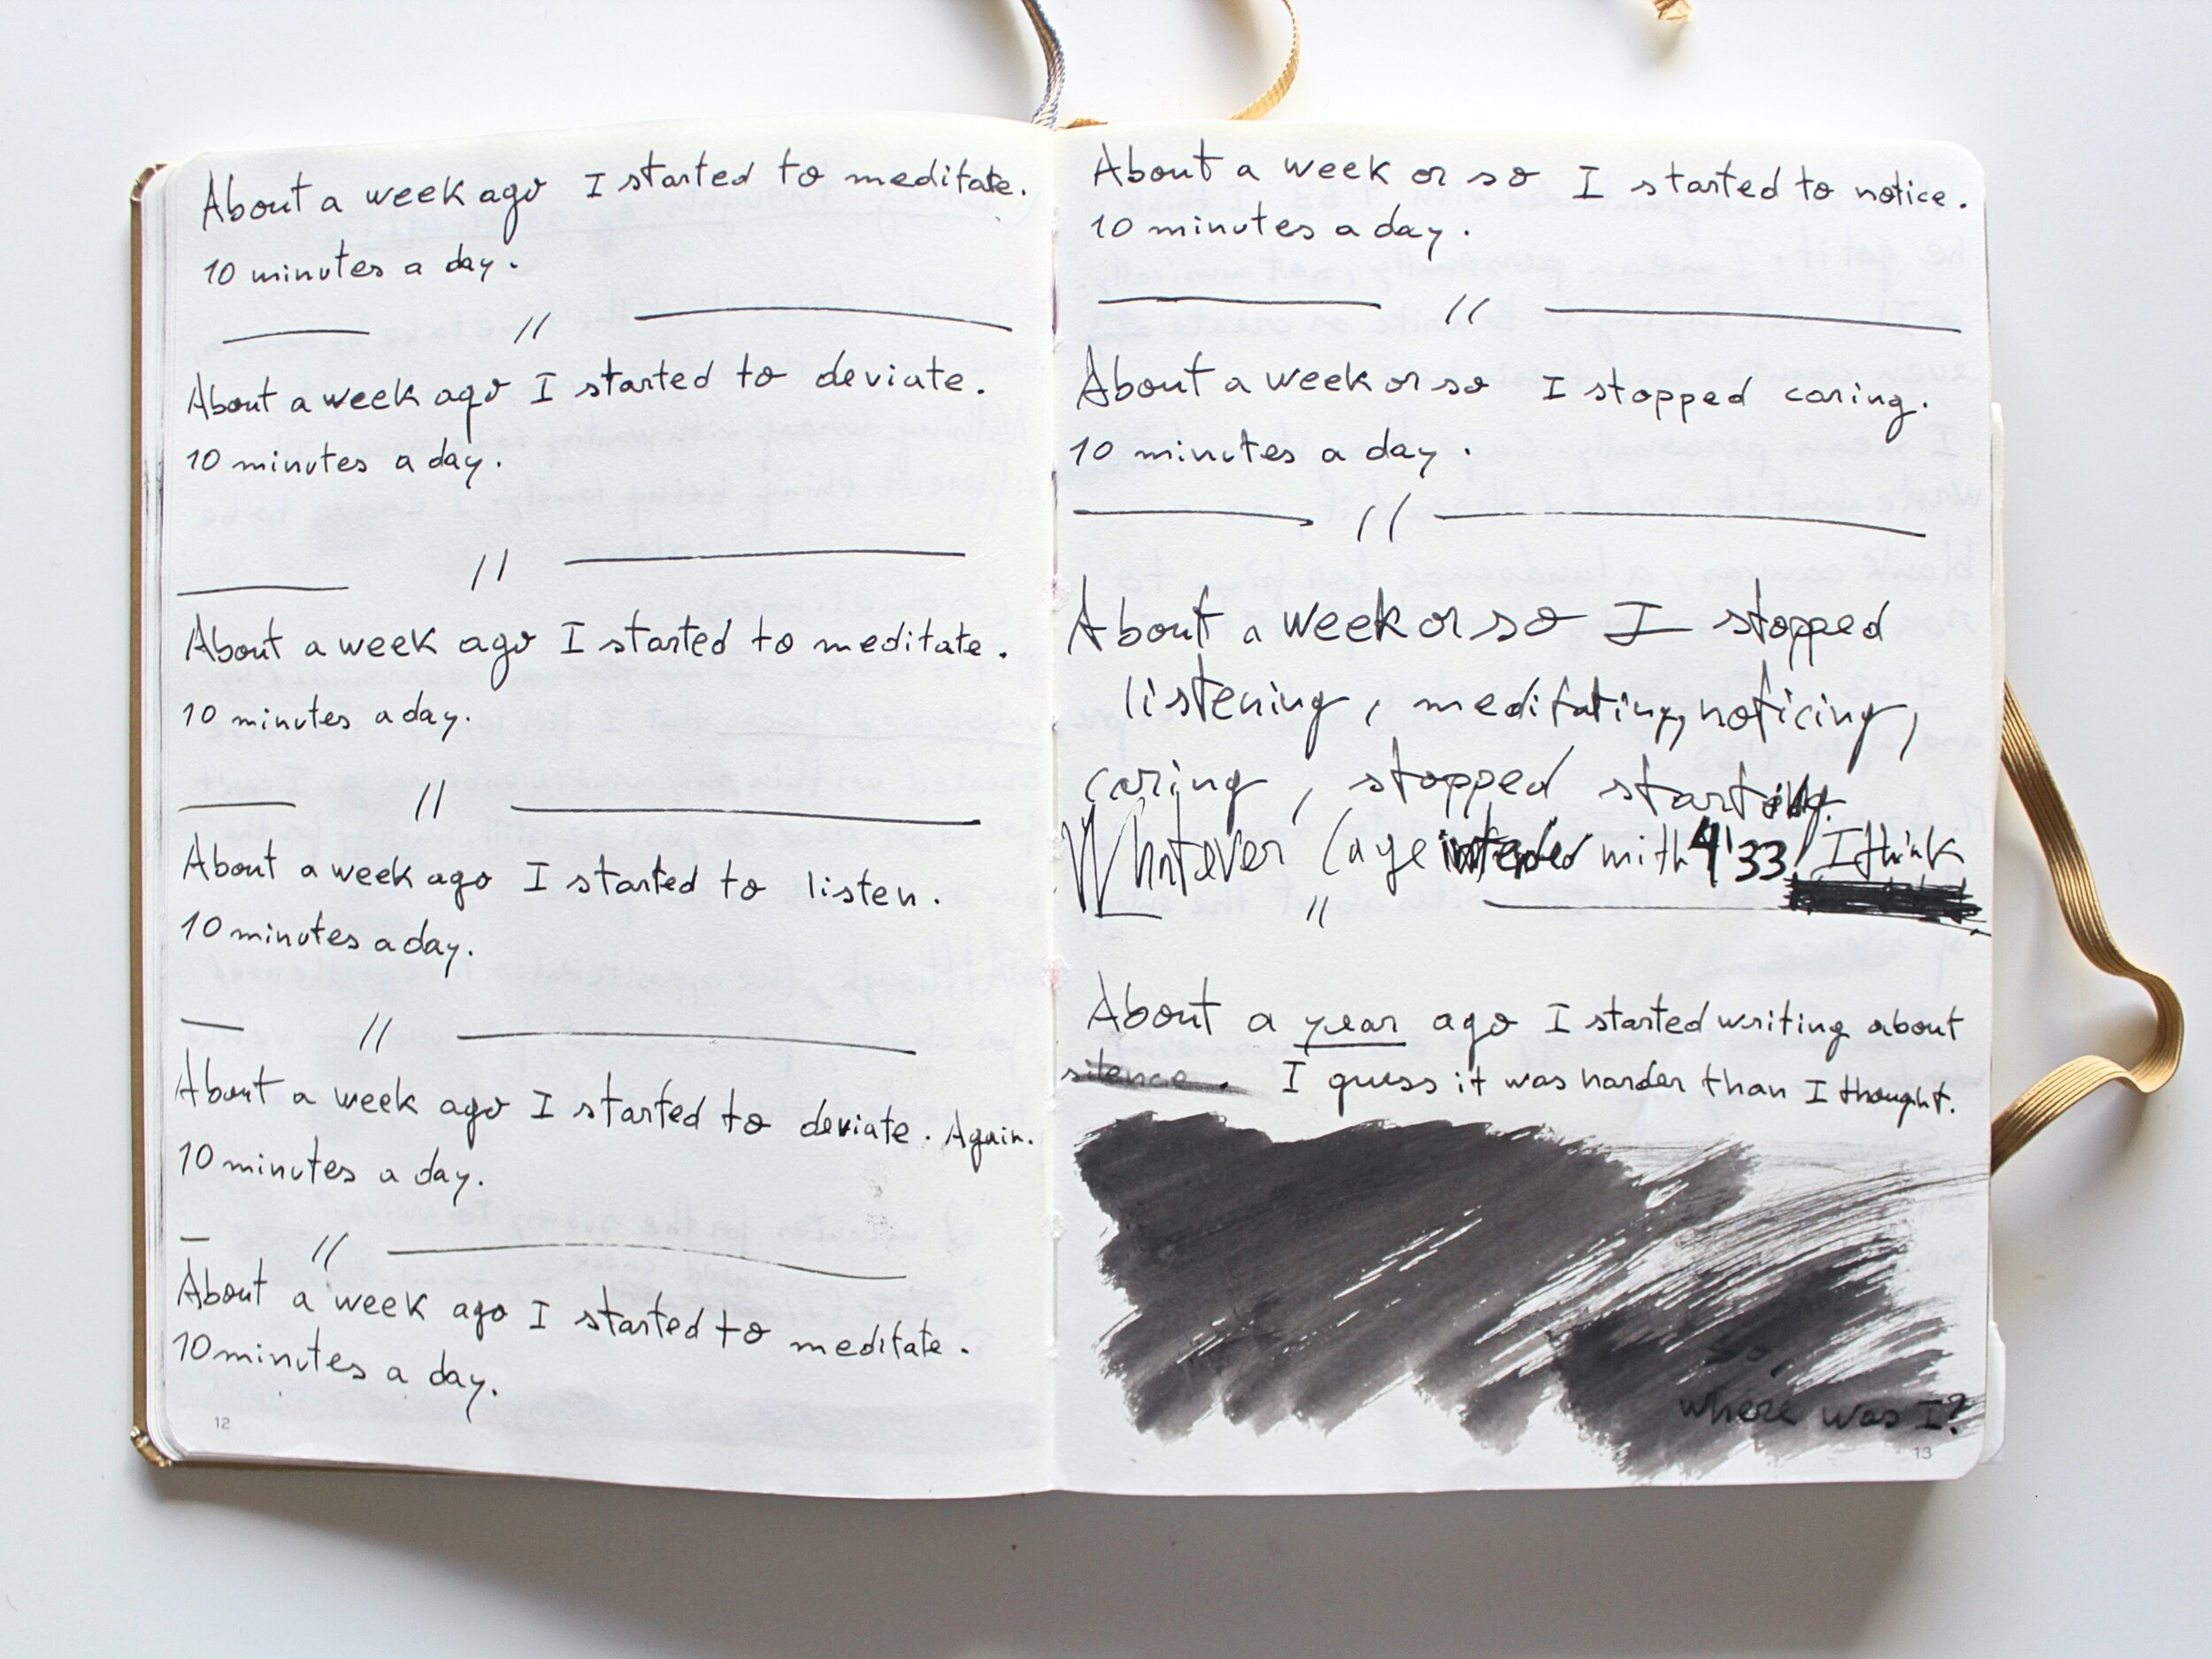 About a week ago I started to meditate.
10 minutes a day.
//
About a week ago I started to deviate.
10 minutes a day.
//
About a week ago I started to meditate.
10 minutes a day.
//
About a week ago I started to listen.
10 minutes a day.
//
About a week ago I started to deviate. Again.
10 minutes a day.
//
About a week ago I started to meditate.
10 minutes a day.
12
About a week or so I started to notice.
10 minutes a day.
//
About a week or so I stopped caring.
10 minutes a day.
//
About a week or so I stopped
listening, meditating, noticing,
caring, stopped starting.
Whatever Cage intended with 4'33, I think
//
About a year ago I started writing about
silence. I guess it was harder than I thought.
so,
where was I?
13